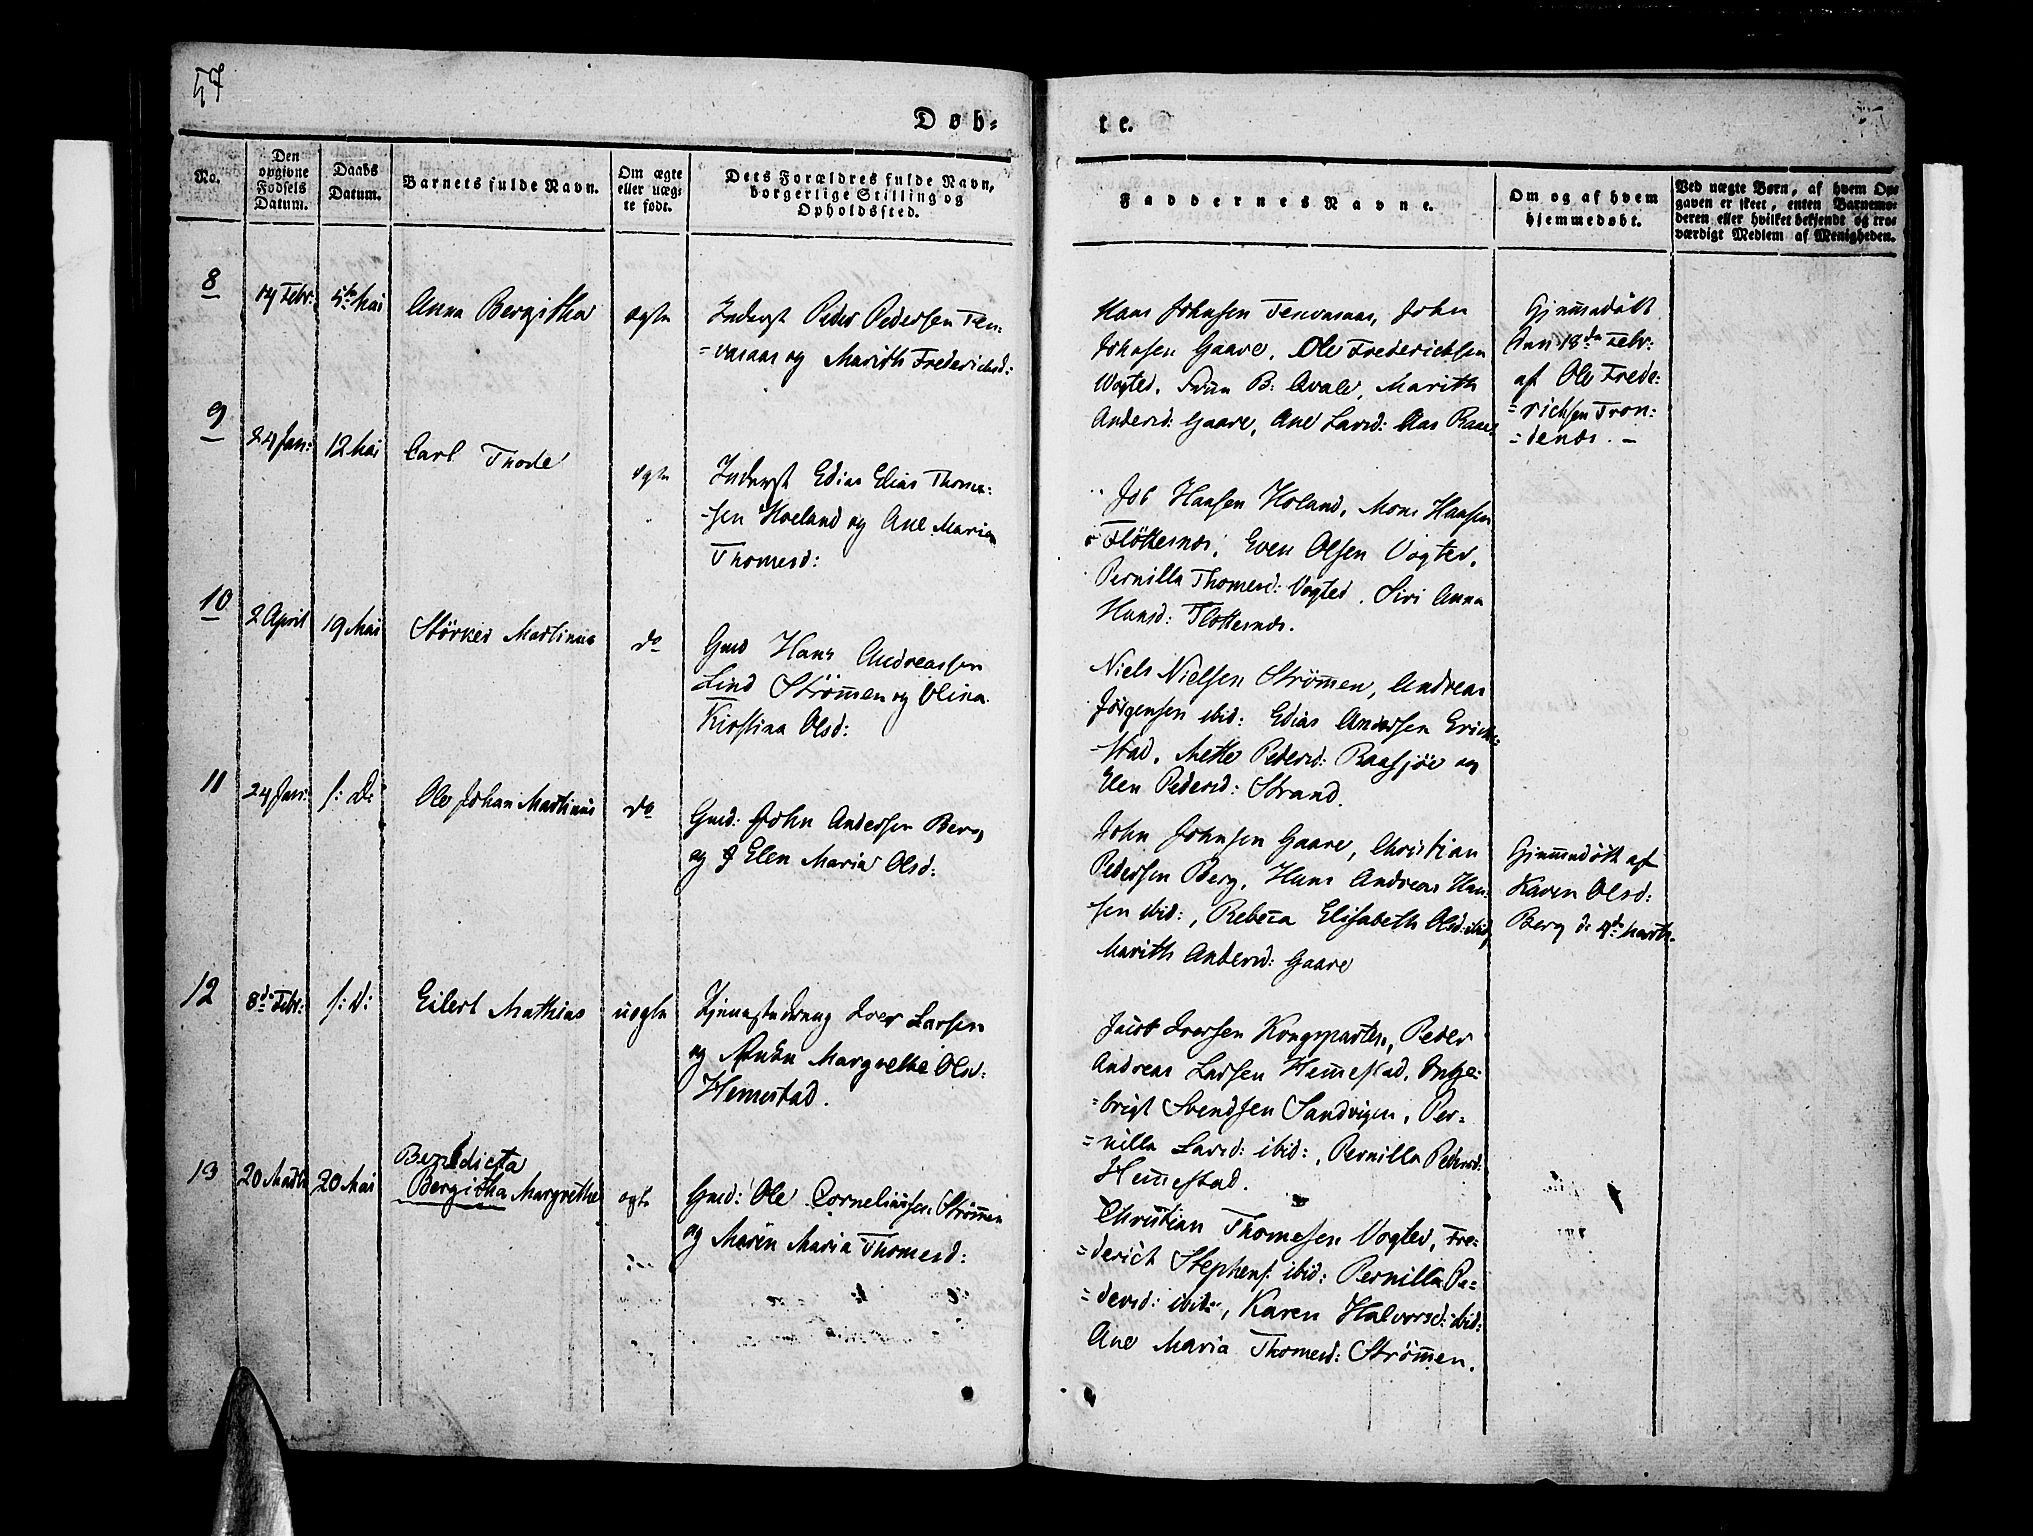 57
Døb-
te.
No.
Den
opgivne
Fødsels
Datum.
Daabs
Datum.
Barnets fulde Navn.
Om ægte
eller uæg-
te født.
Dets Forældres fulde Navn,
borgerlige Stilling og
Opholdssted.
Faddernes Navne.
Om og af hvem
hjemmedøbt.
Ved uægte Børn, af hvem Op-
gaven er skeet, enten Barnemo-
deren eller hvilket bekjendt og tro-
værdigt Medlem af Menigheden.
8
14 Febr: 5te Mai Anna Bergitha ægte
Inderst Peder Pedersen Ten-
=varaas og Marith Frederichsd:
Hans Johnsen Tenvaraas, John
Johnsen Gaare, Ole Frederichsen
Vogted, B: Avale, Marith
Andersd: Gaare, Ane Larsd: Aas
Hjemmedøbt
den 18de Febr:
af Ole Frede:
=richsen Tron:
=denæs. -
9
24 Jan: 12 Mai Carl Thode ægte
Inderst Edias Elias Thome:
-sen Hoeland og Ane Maria
Thomesd:
Job Hansen Holand, Mons Hansen
Fløttesnæs, Even Olsen Vogted,
Pernilla Thomesd: Vogted, Siri Anna
Hansd: Fløttesnæs.
10
2 April 19 Mai Størker Martinus do
Gmd Hans Andreassen
Lind Strømen og Olina
Kirstina Olsd:
Niels Nielsen Strømen, Andreas
Jørgensen ibid: Edias Andersen Erich-
-stad, Mette Pedersd: Raasjøe og
Elen Pedersd: Strand.
11
24 Jan: s: D: Ole Johan Martinus do
Gmd: John Andersen Berg
og Elen Maria Olsd:
John Johnsen Gaare, Christian
Pedersen Berg, Hans Andreas Han-
sen ibid:, Rebecca Elisabeth Olsd: ibid,
Marith Andersd: Gaare
Hjemmedøbt af
Karen Olsd:
Berg d: 4de Marts.
12
8de Febr: s: D: Eilert Mathias uægte
Tjenestedreng Iver Larsen
og Margrethe Olsd:
Hemestad.
Jacob Iversen Kongsparten, Peder
Andreas Larsen Hemestad, Inge-
=brigt Svendsen Sandvigen, Per-
=nilla Larsd: ibid:, Pernilla Pedersd:
Hemestad.
13
20 Marts 20 Mai
Benedicta
Bergitha Margrethe ægte
Gmd: Ole Corneliussen Strømen
og Maren Maria Thomesd:
Christian Thomesen Vogted, Fre-
=derich Stephens: ibid: Pernilla Pe-
=dersd: ibid:, Karen Halvorsd: ibid:
Ane Maria Thomesd: Strømen.